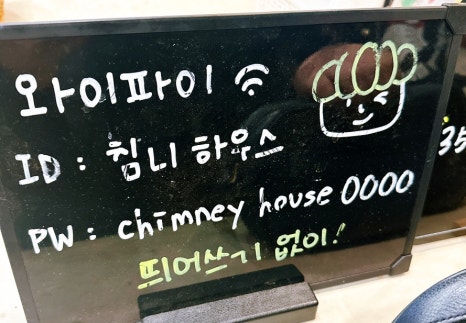 와이파이
ID : 침니 하우스
PW : chimney house 0000
띄어쓰기 없이!
35